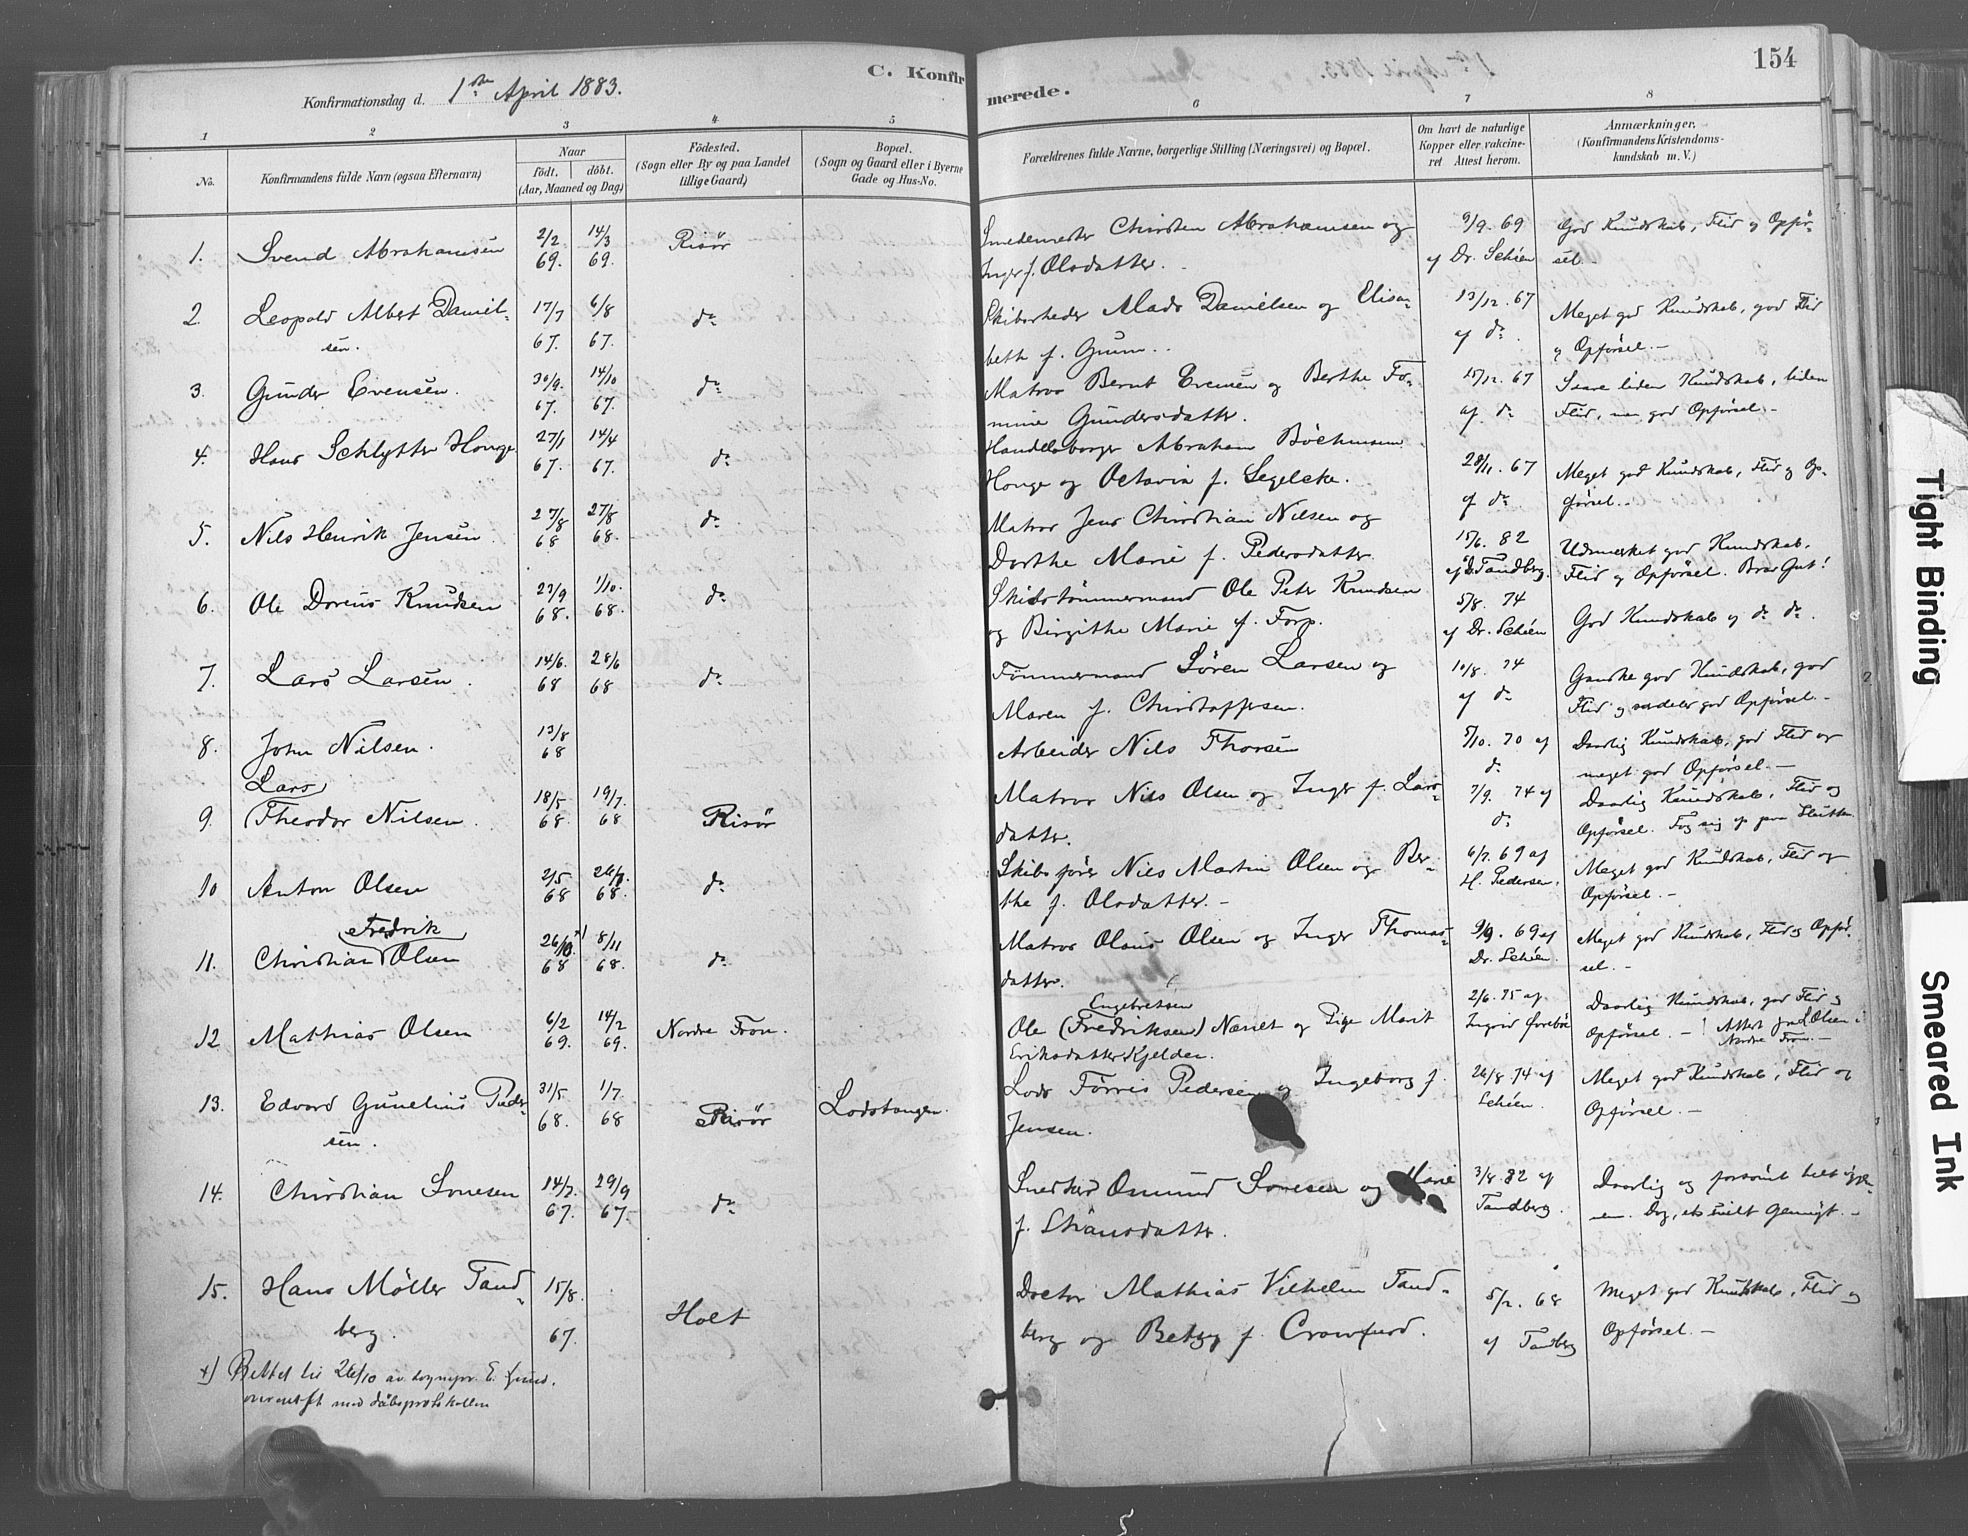 154
C. Konfirmerede.
Konfirmationsdag d. 1ste April 1883.
1 2 3 4 5 6 7 8
No.
Konfirmandens fulde Navn (ogsaa Efternavn)
Naar
födt. döbt.
(Aar, Maaned og Dag)
Födested.
(Sogn eller By og paa Landet
tillige Gaard.)
Bopæl.
(Sogn og Gaard eller i Byerne
Gade og Hus-No.
Forældrenes fulde Navne, borgerlige Stilling (Næringsvei) og Bopæl.
Om havt de naturlige
Kopper eller vakcine-
ret Attest herom.
Anmærkninger.
(Konfirmandens Kristendoms-
kundskab m. V.)
1. Svend Abrahamsen 2/2 69. 14/3 69. Risör
Smedemester Christen Abrahamsen og
Inger f. Olsdatter.
9/9. 69
af Dr. Schien
God Kundskab, Flid og Opfør-
sel.
2. Leopold Albert Daniel-
sen. 17/7 67. 6/8 67. do
Skibsrheder Mads Danielsen og Elisa-
beth f. Grum.
13/12. 67
af do.
Meget god Kundskab, god Flid
og Opførsel.-
3. Gunder Evensen. 30/9. 67. 14/10 67. do
Matros Bernt Evensen og Berthe To-
mine Gundersdatter.
15/12. 67
af do
Saare liden Kundskab, liden
Flid, men god Opførsel.-
4. Hans Schlytter Honge 27/1 67. 14/4 67. do
Handelsborger Abraham Böckmann
Honge og Octavia f. Segelcke.
28/11. 67
af do
Meget god Kundskab, Flid og Op-
førsel.-
5. Nils Henrik Jensen. 27/8 68 27/8 68. do
Matros Jens Christian Nilsen og
Dorthe Marie f. Pedersdatter.
15/6. 82
af D. Tandberg.
Udmærket god Kundskab.
Flid og Opførsel. Brav Gut!
6. Ole Dorens Knudsen 23/9 68. 1/10. 68. do
Skibstømmermand Ole Peter Knudsen
og Birgithe Marie f. Torp.
5/8. 74
af Dr. Schien
God Kundskab og do do.
7. Lars Larsen. 14/6. 68 28/6 68 do
Tømmermand Søren Larsen og
Maren f. Christoffersen.
10/8. 74
af do
Ganske god Kundskab, god
Flid og særdeles god Opførsel.-
8. John Nilsen. 13/8 68
Arbeider Nils Thorsen
5/10. 70 af
do
Daarlig Kundskab, god Flid og
meget god Opførsel.-
Lars
9. Theodor Nilsen. 18/5 68. 19/7. 68 Risör
Matros Nils Olsen og Inger f. Lars-
datter.
7/9. 74 af
do
Daarlig Kundskab, Flid og
Opførsel. Tog sig op paa Slutten.
10 Anton Olsen 2/5 68 26/7. 68. do
Skibsfører Nils Martin Olsen og Ber-
the f. Olsdatter.-
6/7. 69 af
H. Pedersen.
Meget god Kundskab, Flid og
Opførsel.-
Fredrik
11. Christian Olsen 26/10 x) 68 8/11 68. do
Matros Olaus Olsen og Inger Thomas-
datter.
9/9. 69 af
Dr. Schien.
Meget god Kundskab, Flid og Opfør-
sel.-
12 Mathias Olsen 6/2 69. 14/2 69. Nordre Fron.
Engebretsen
Ole (Fredriksen) Næset og Pige Marit
Eriksdatter Kjelden.
2/6. 75 af
Daarlig Kundskab, god Flid og
Opførsel.- ! Attest fra L. Olsen i
Nordre Fron.-
13. Edvard Gunelius Peder-
sen. 31/5 68. 1/7. 68 Risör Lodstangen.
Lods Tørris Pedersen og Ingeborg f.
Jensen.
26/8 74 af
Schien.
Meget god Kundskab, Flid og
Opførsel.-
14. Christian Sonesen 14/7. 67. 29/9 67- do
Snedker Osmund Sonesen og Marie
f.
3/8. 82 af
Tandberg.
Daarlig og forsømt helt igjen-
nem. Dog, et snilt Gemyt.-
15. Hans Möller Tand-
berg. 15/8. 67. Holt
Doctor Mathias Vilhelm Tand-
berg og Betzy f. Crowfurd.
5/2. 68
af Tandberg
Meget god Kundskab, Flid og
Opførsel.-
x) Rettet til 26/10 av sognepr. E.
overensst med dåbsprotokollen
Tight Binding
Smeared Ink